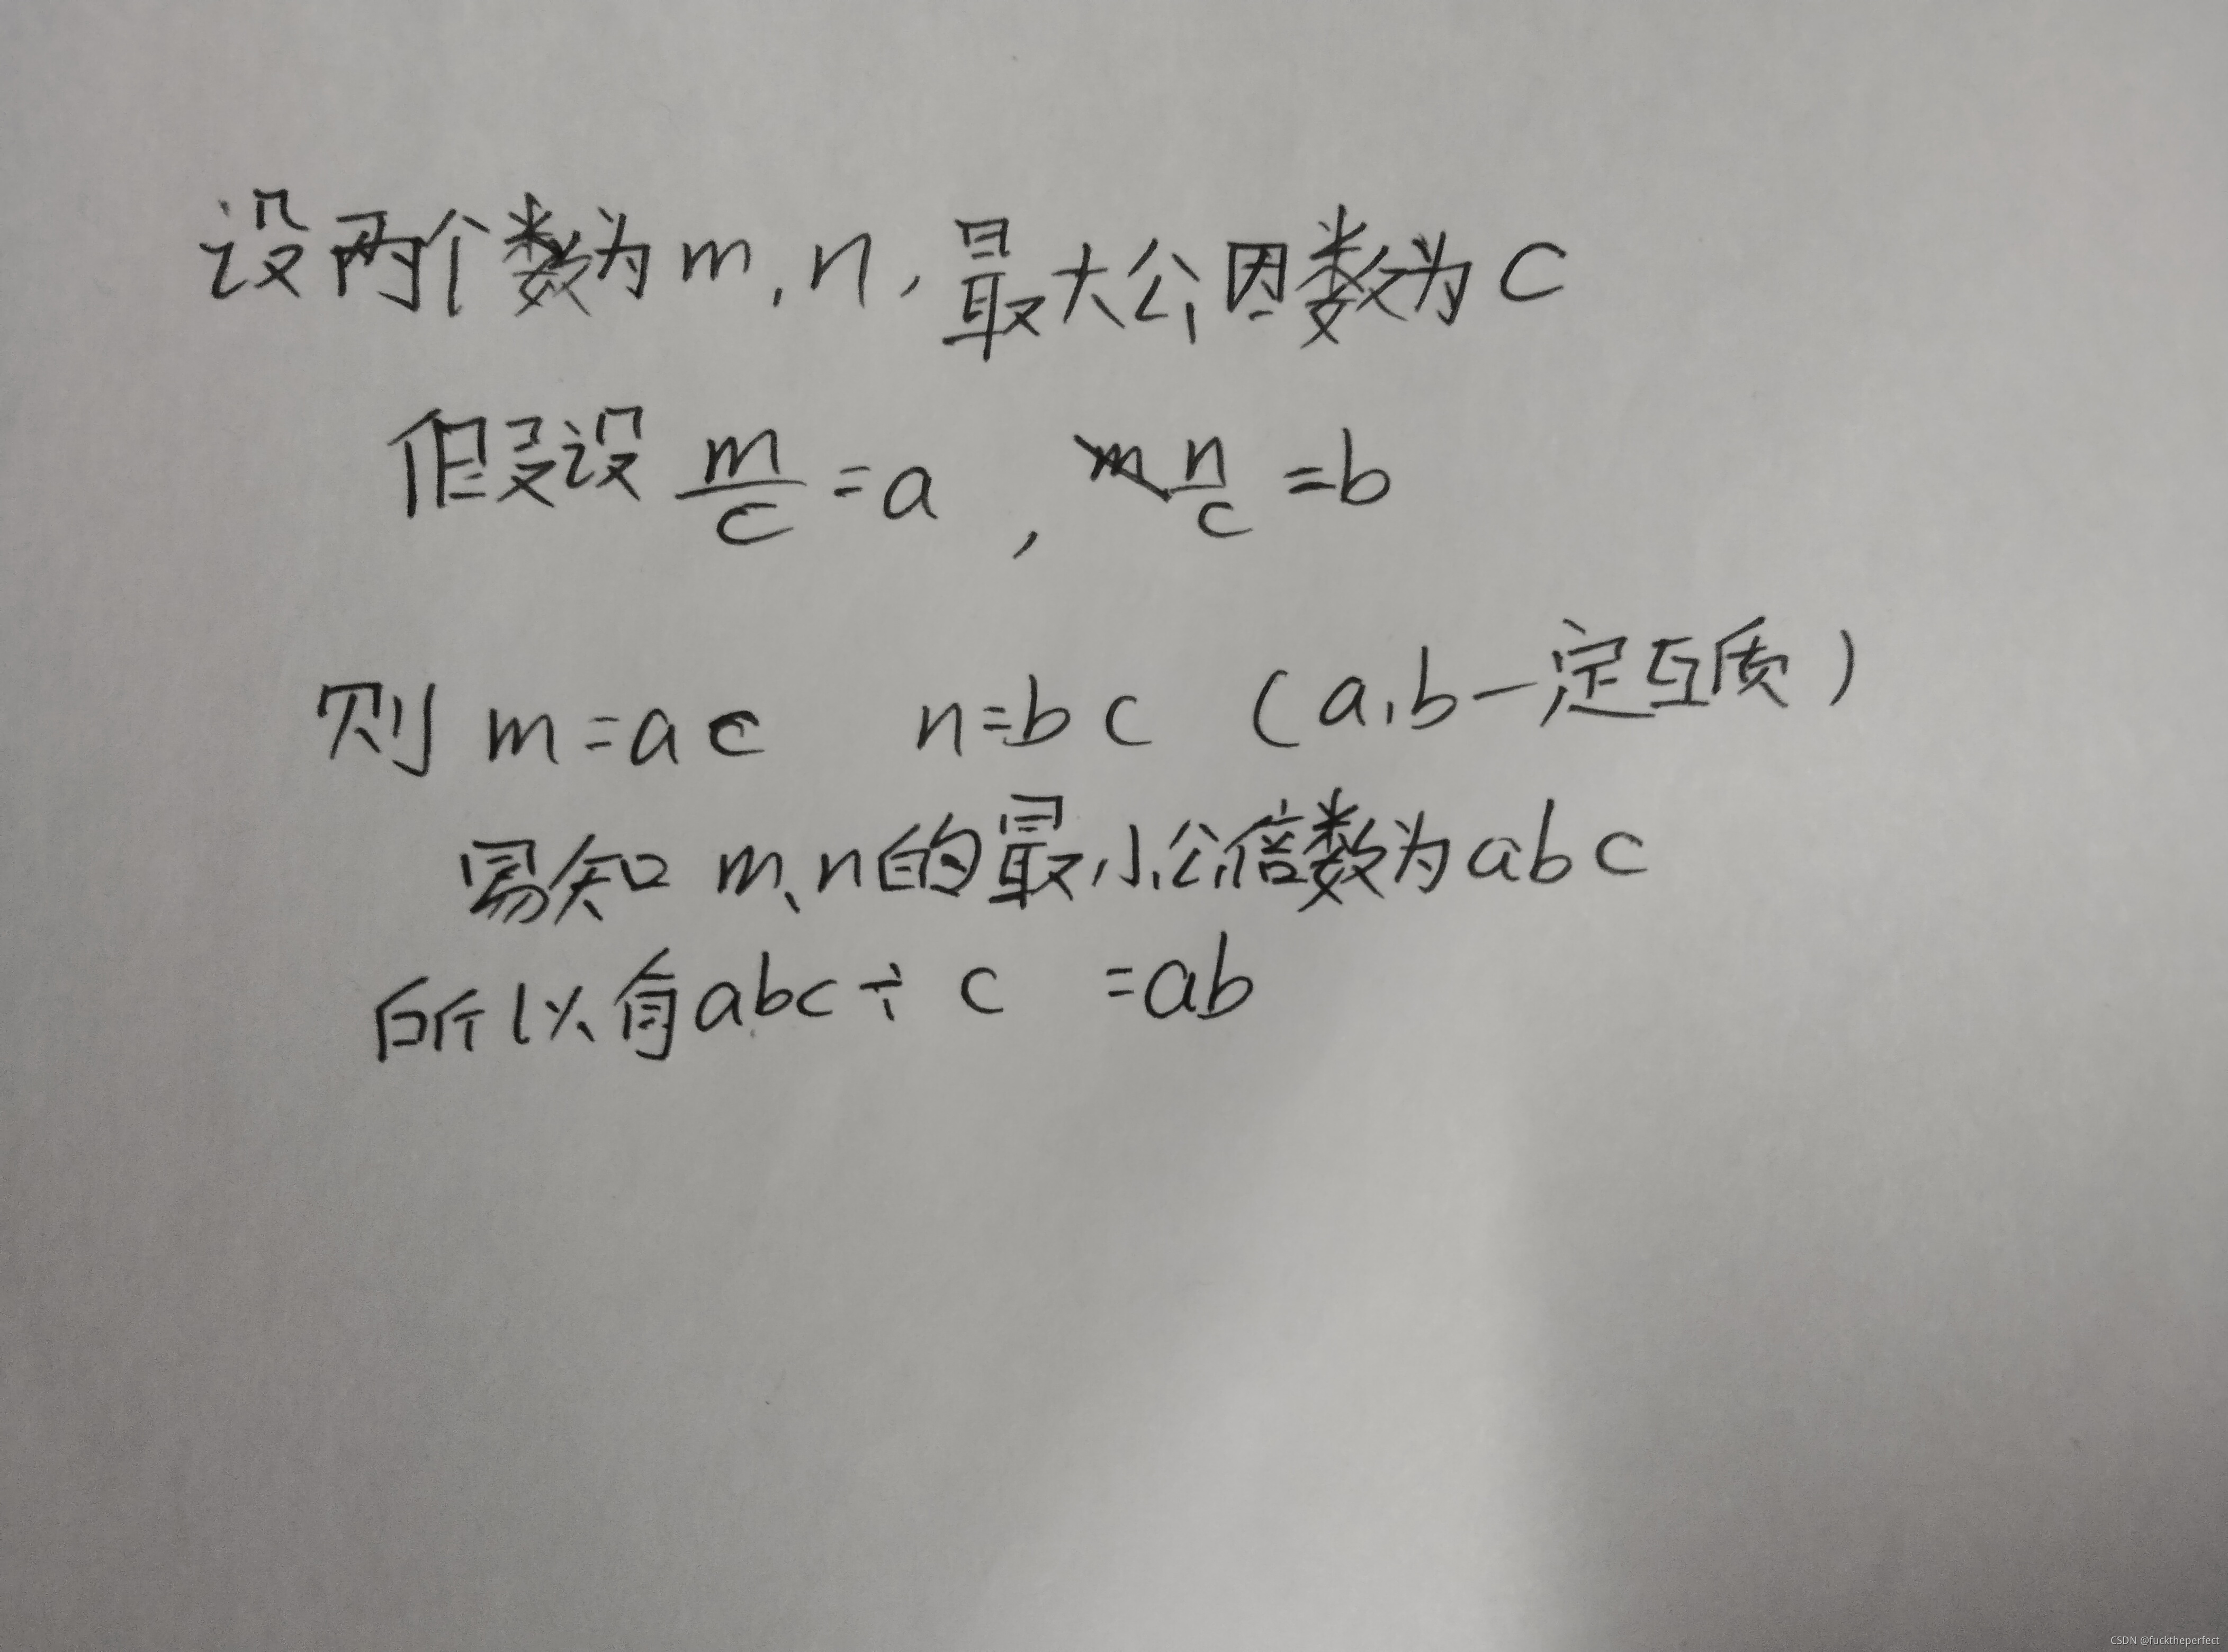 设两个数为m,n,最大公因数为c
假设 m/c = a , n/c = b
则 m=ac n=bc (a,b一定互质)
易知 m、n的最小公倍数为abc
所以有abc÷c =ab
CSDN @fucktheperfect